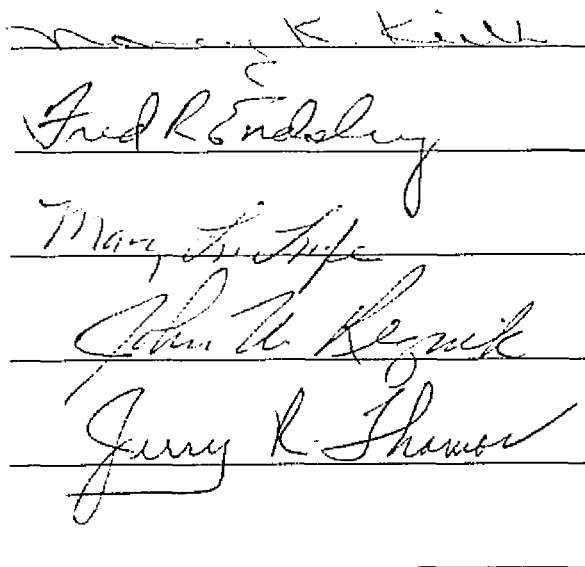 Nancy K. Keith
Fred R Endsley
Mary
John W Reznik
Jerry R. Thomas